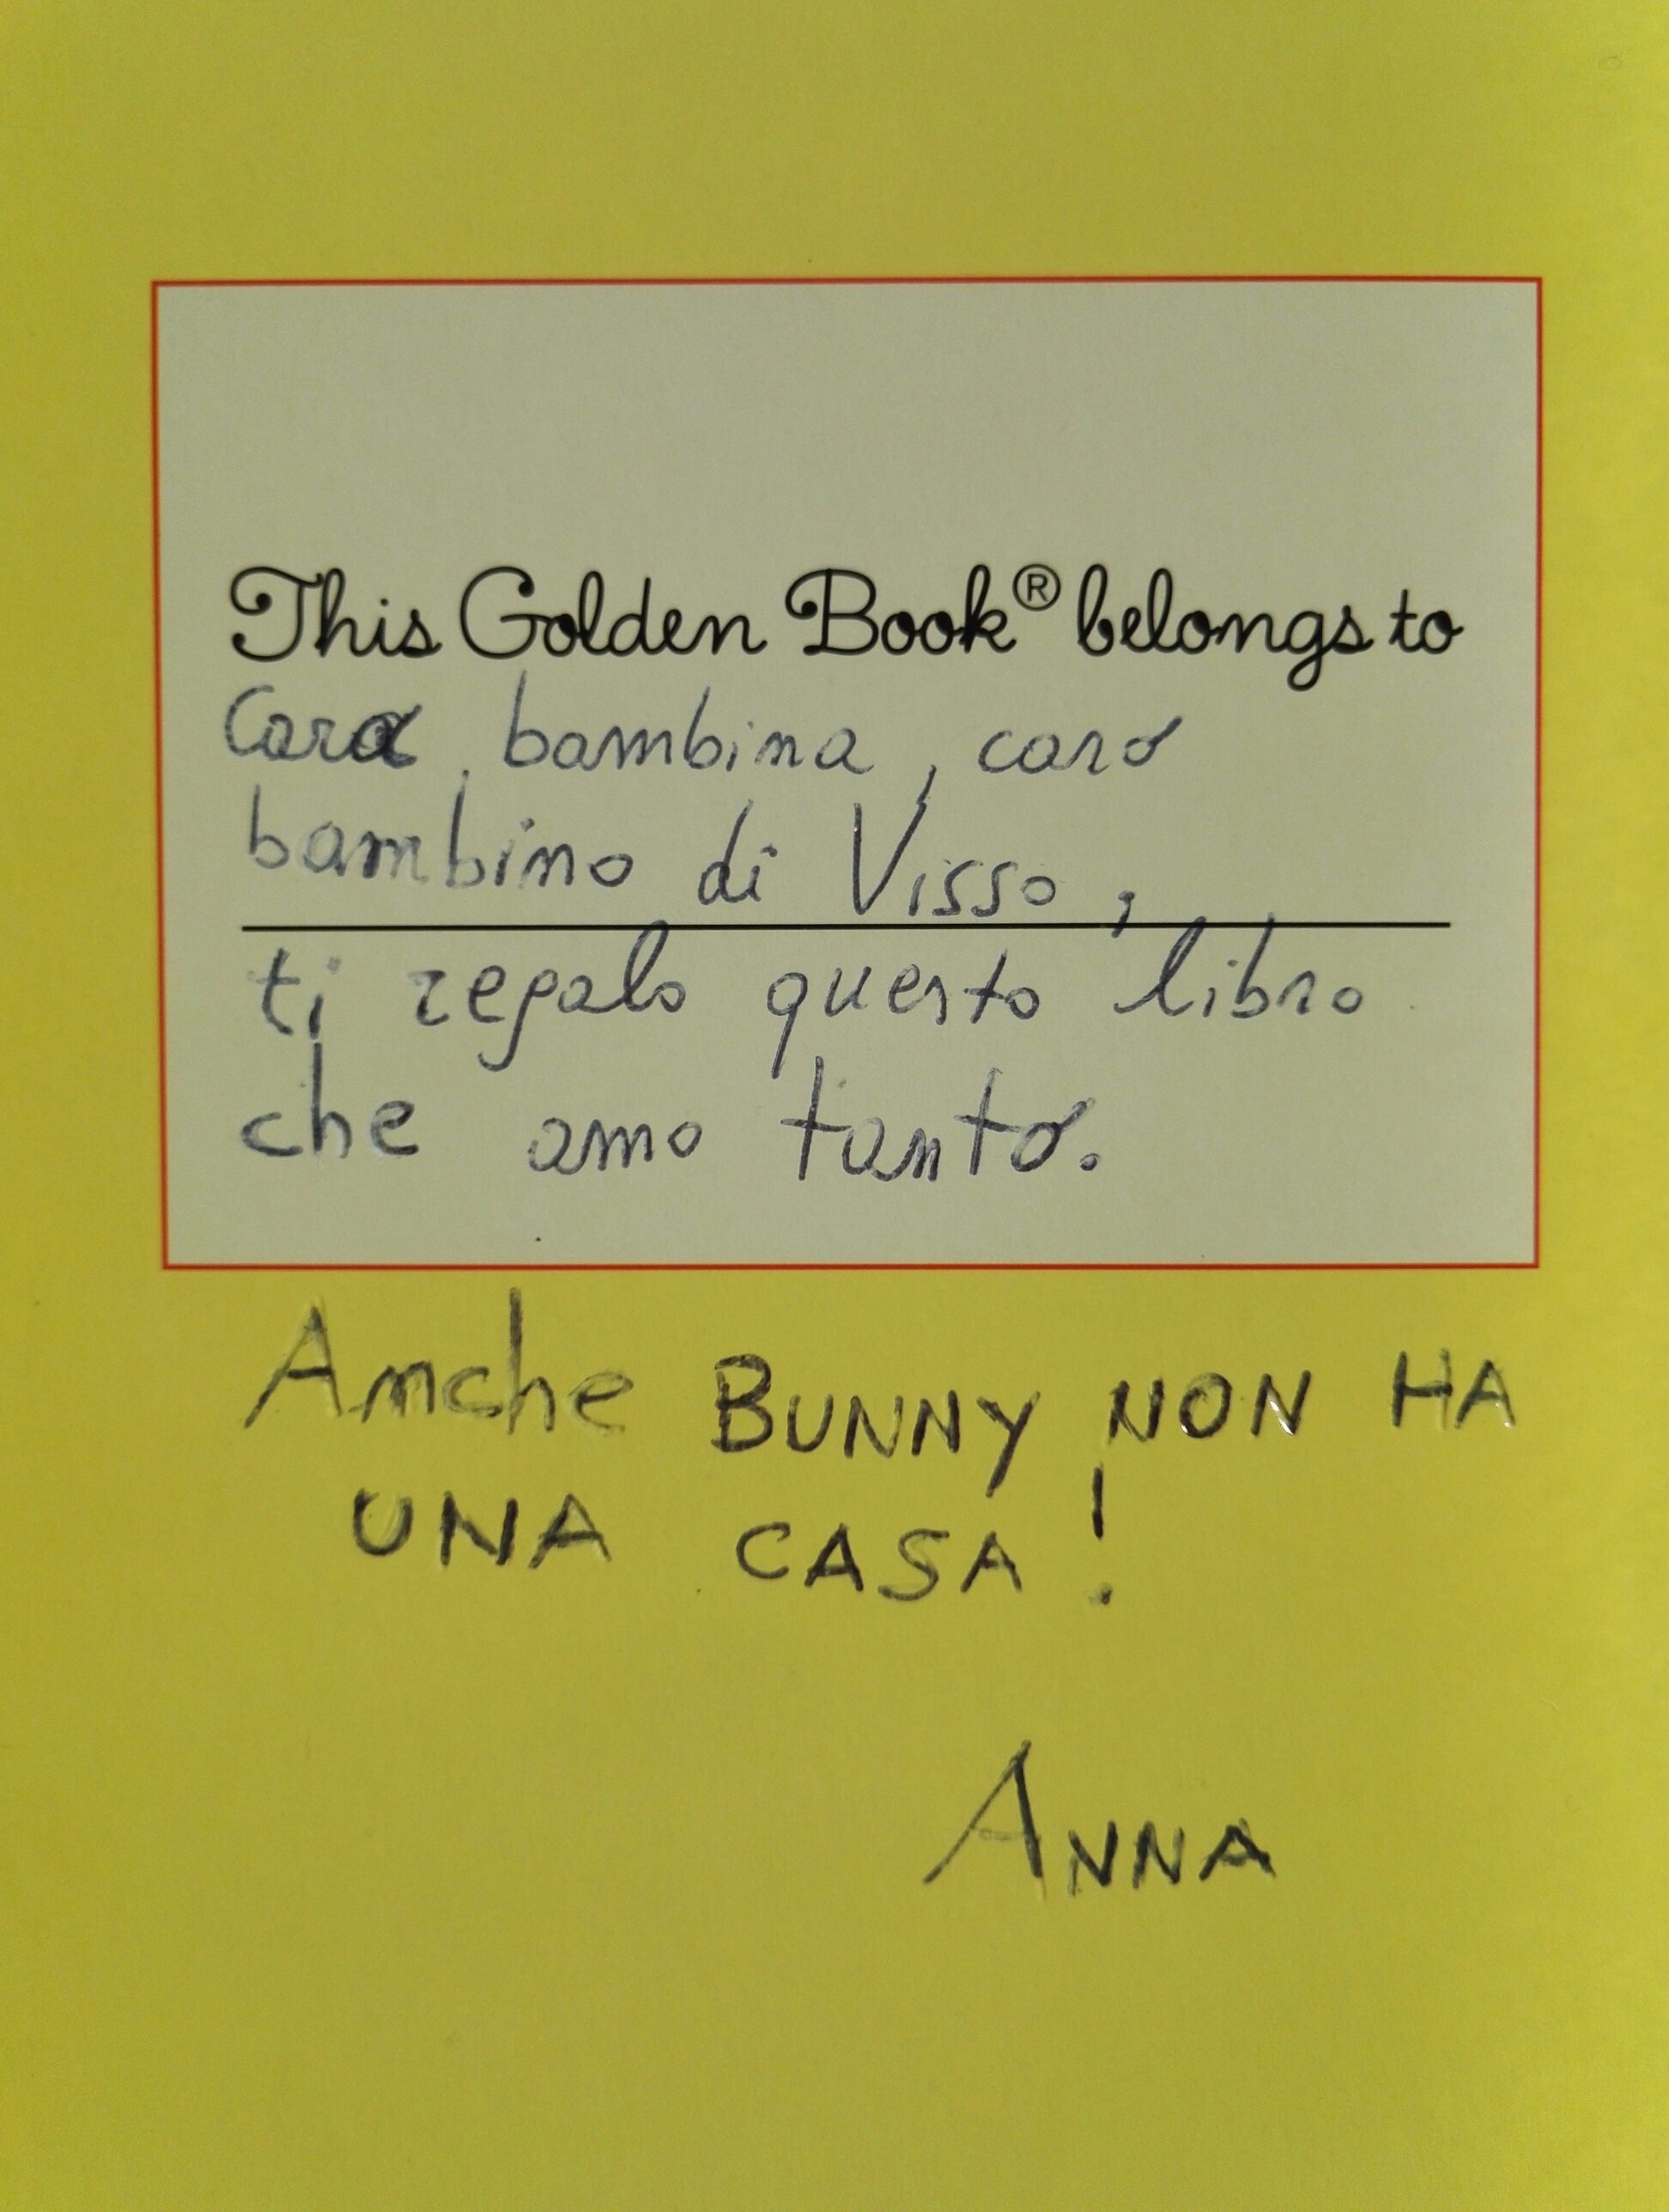 This Golden Book® belongs to
Cara bambina, caro
bambino di Visso,
ti regalo questo libro
che amo tanto.
Anche BUNNY NON HA
UNA CASA!
ANNA